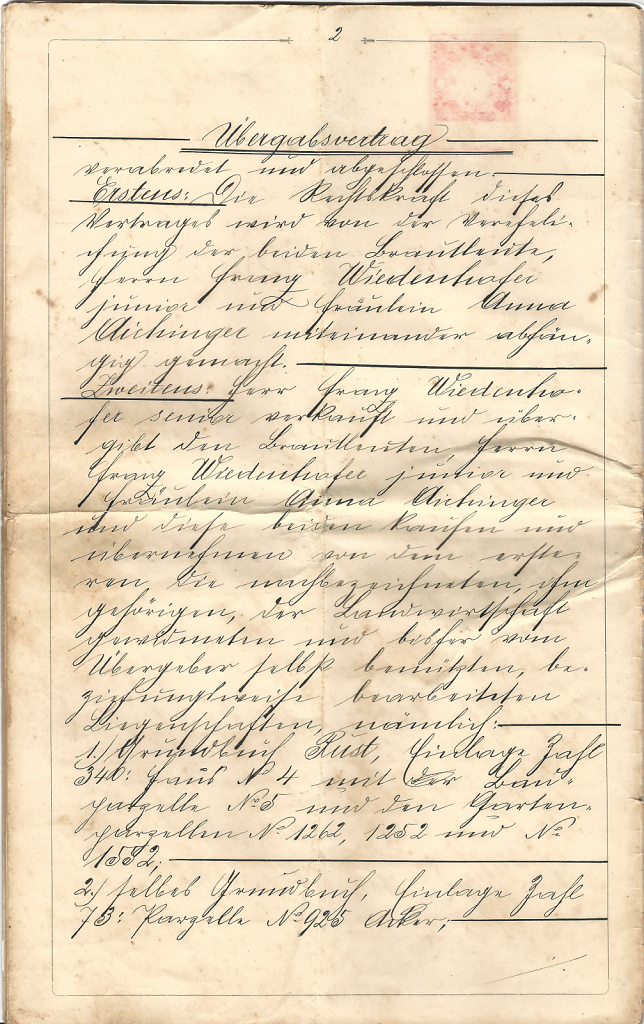 2
Übergabsvertrag
verabredet und abgeschlossen.
Erstens: Die Rechtskraft dieses
Vertrages wird von der Vereheli-
chung der beiden Brautleute,
Herrn Franz Wiedenhofer
junior und Fräulein Anna
Aichinger miteinander abhän-
gig gemacht.
Zweitens: Herr Franz Wiedenho-
fer senior verkauft und über-
gibt den Brautleuten, Herrn
Franz Wiedenhofer junior und
Fräulein Anna Aichinger
und diese beiden kaufen und
übernehmen von dem erste-
ren die nachbezeichneten, ihm
gehörigen, der Landwirtschaft
gewidmeten und bisher vom
Übergeber selbst benützten, be-
ziehungsweise bearbeiteten
Liegenschaften, nämlich:
1.) Grundbuch Rust, Einlage Zahl
340: Haus No 4 mit der Bau-
parzelle No 5 und den Garten-
parzellen No 1262, 1252 und No
1532;
2.) selbes Grundbuch, Einlage Zahl
73: Parzelle No 925 Acker;